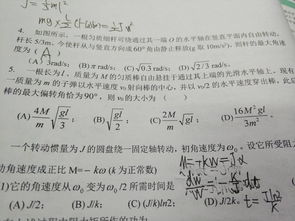 J = ½ml²
mg × ½ (1-cosω) = ½Jω²
4. 如图所示，一根匀质细杆可绕通过其一端 O 的水平轴在竖直平面内自由转动，
杆长 5/3m。今使杆从与竖直方向成60°角由静止释放(g 取 10m/s²)，则杆的最大角速
度为 ( A )
(A) 3rad/s; (B) π rad/s; (C) √0.3 rad/s; (D) √2/3 rad/s.
5. 一根长为 l、质量为 M 的匀质棒自由悬挂于通过其上端的光滑水平轴上。现有
一质量为 m 的子弹以水平速度 v₀ 射向棒的中心，并以 v₀/2 的水平速度穿出棒，此后
棒的最大偏转角恰为90°，则 v₀ 的大小为 ( )
(A) 4M/m √gl/3; (B) √gl/2; (C) 2M/m √gl; (D) 16M²gl/3m²
一个转动惯量为 J 的圆盘绕一固定轴转动，初角速度为 ω₀。设它所受阻力
动角速度成正比 M=－kω (k 为正常数)
(1)它的角速度从 ω₀ 变为 ω₀/2 所需时间是
(A) J/2; (B) J/k; (C) (J/k)ln2; (D) J/2k